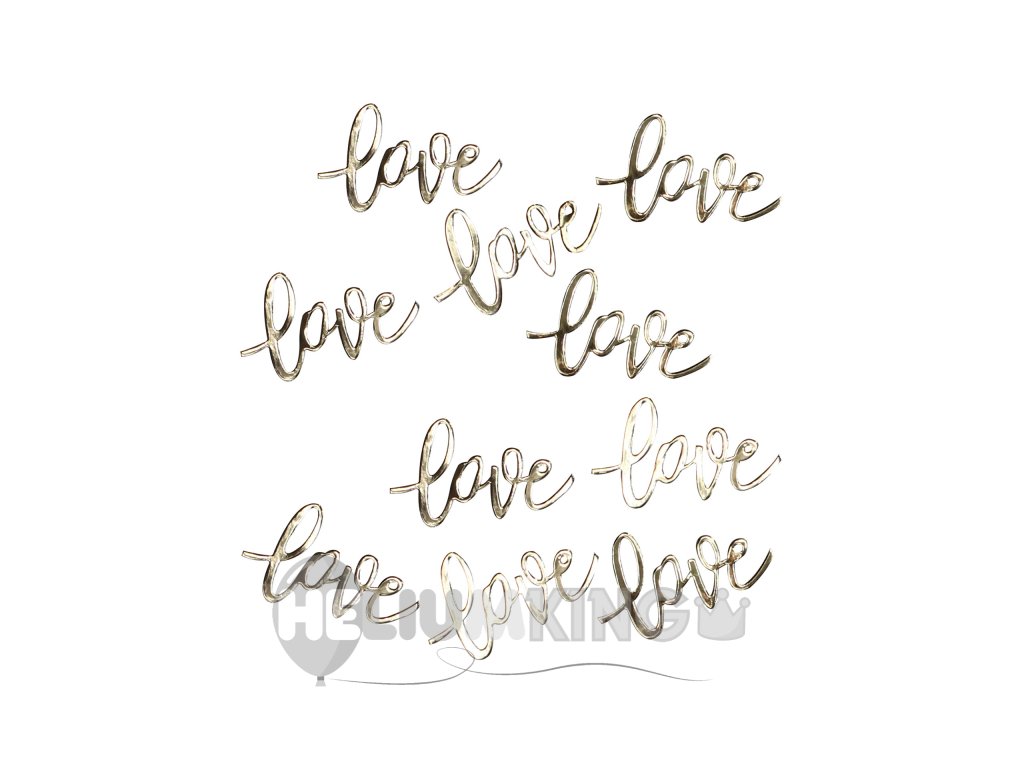 love
love
love
love
love
love
love
love
love
love
HELIUMKING